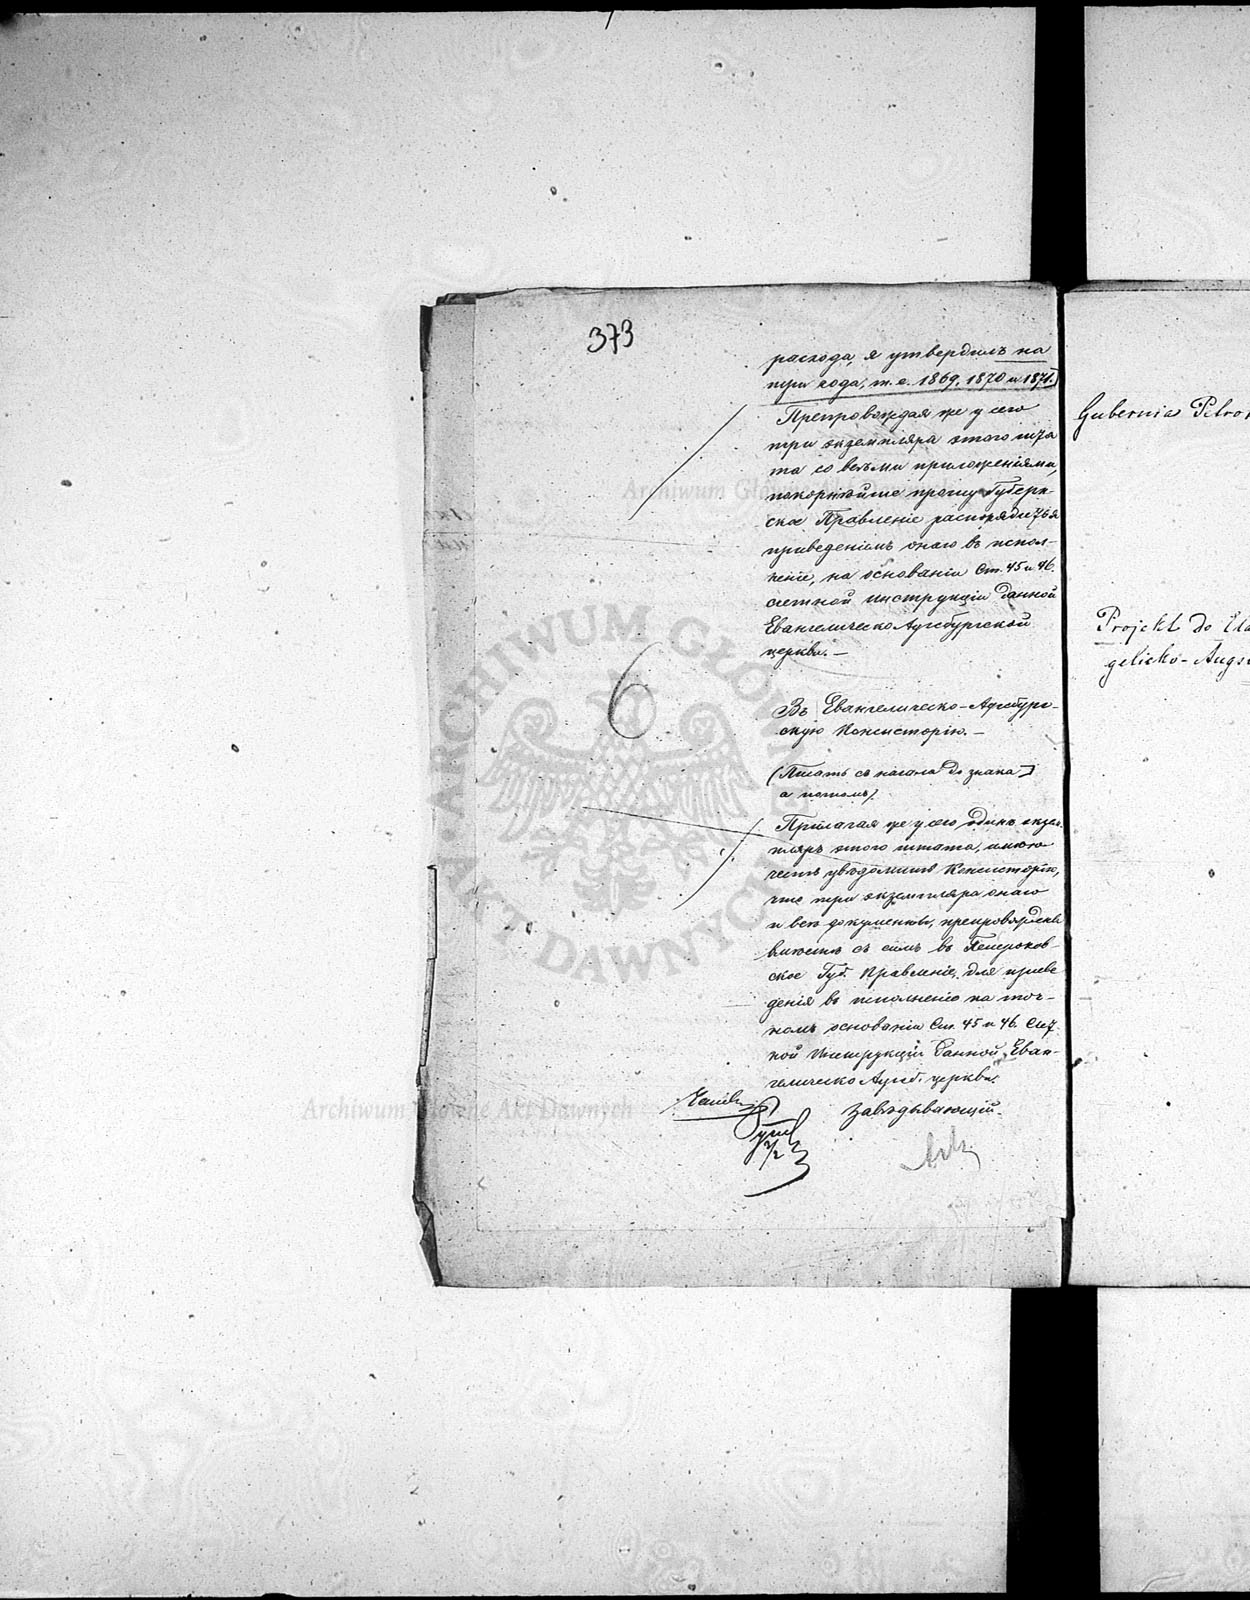 373
расхода, я утвердилъ на
три года, т. е. 1869, 1870 и 1871.]
Препровождая же у сего
три экземпляра этого шта
та со всѣми приложеніями,
покорнѣйше прошу Губерн-
ское Правленіе распорядиться
приведеніемъ онаго въ испол-
неніе, на основаніи Ст. 45 и 46.
счетной инструкціи данной
Евангелическо Аугсбургской
церкви. —
6
Въ Евангелическо-Аугсбург-
скую Консисторію. —
(Писать съ начала до знака ]
а потомъ)
Прилагая же у сего одинъ экзем-
пляръ этого штата, имѣю
честь увѣдомить Консисторію,
что три экземпляра онаго
и всѣ документы, препровождены
вмѣстѣ съ симъ въ Петроков-
ское Губ. Правленіе, для приве
денія въ исполненіе на точ-
номъ основаніи Ст. 45 и 46. Счет
ной Инструкціи данной Еван-
гелическо Аугсб. церкви.
Завѣдывающій.
Gubernia Petrok
Projekt do Eta
gelicko-Augs
Archiwum Główne Akt Dawnych
ARCHIWUM GŁÓWNE AKT DAWNYCH
Archiwum Główne Akt Dawnych